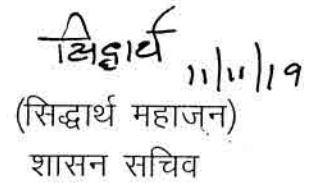 सिद्धार्थ 11/11/19
(सिद्धार्थ महाजन)
शासन सचिव